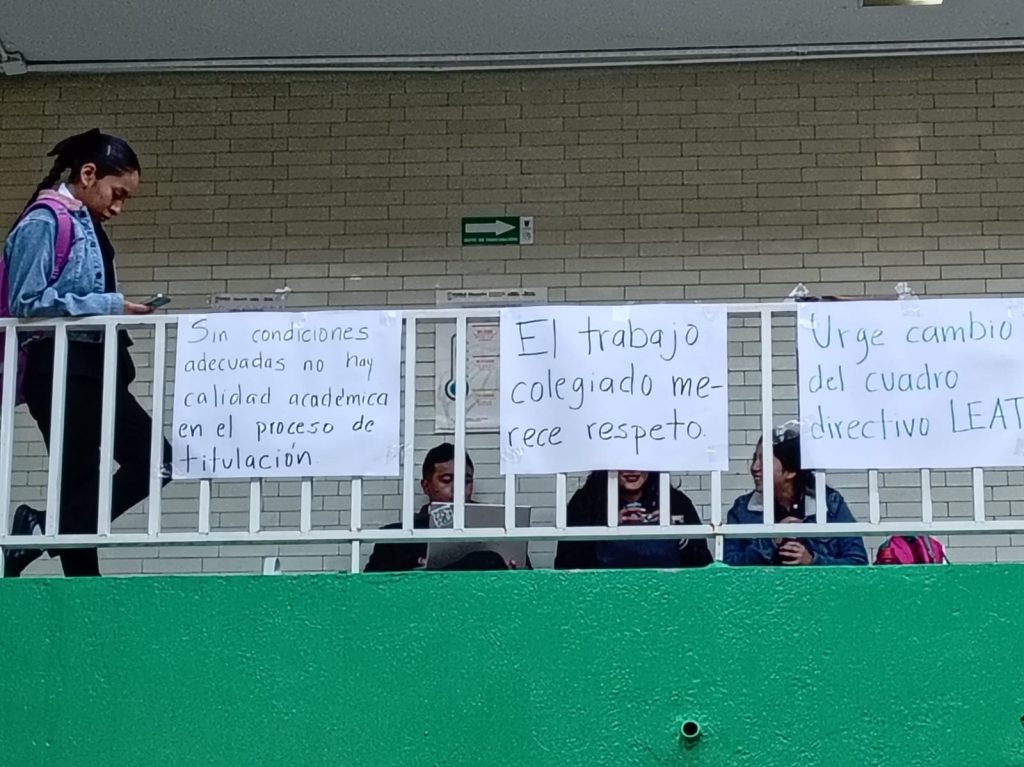 RUTA DE EVACUACIÓN
Sin condiciones
adecuadas no hay
calidad académica
en el proceso de
titulación.
El trabajo
colegiado me-
rece respeto.
Urge cambio
del cuadro
directivo LEAT